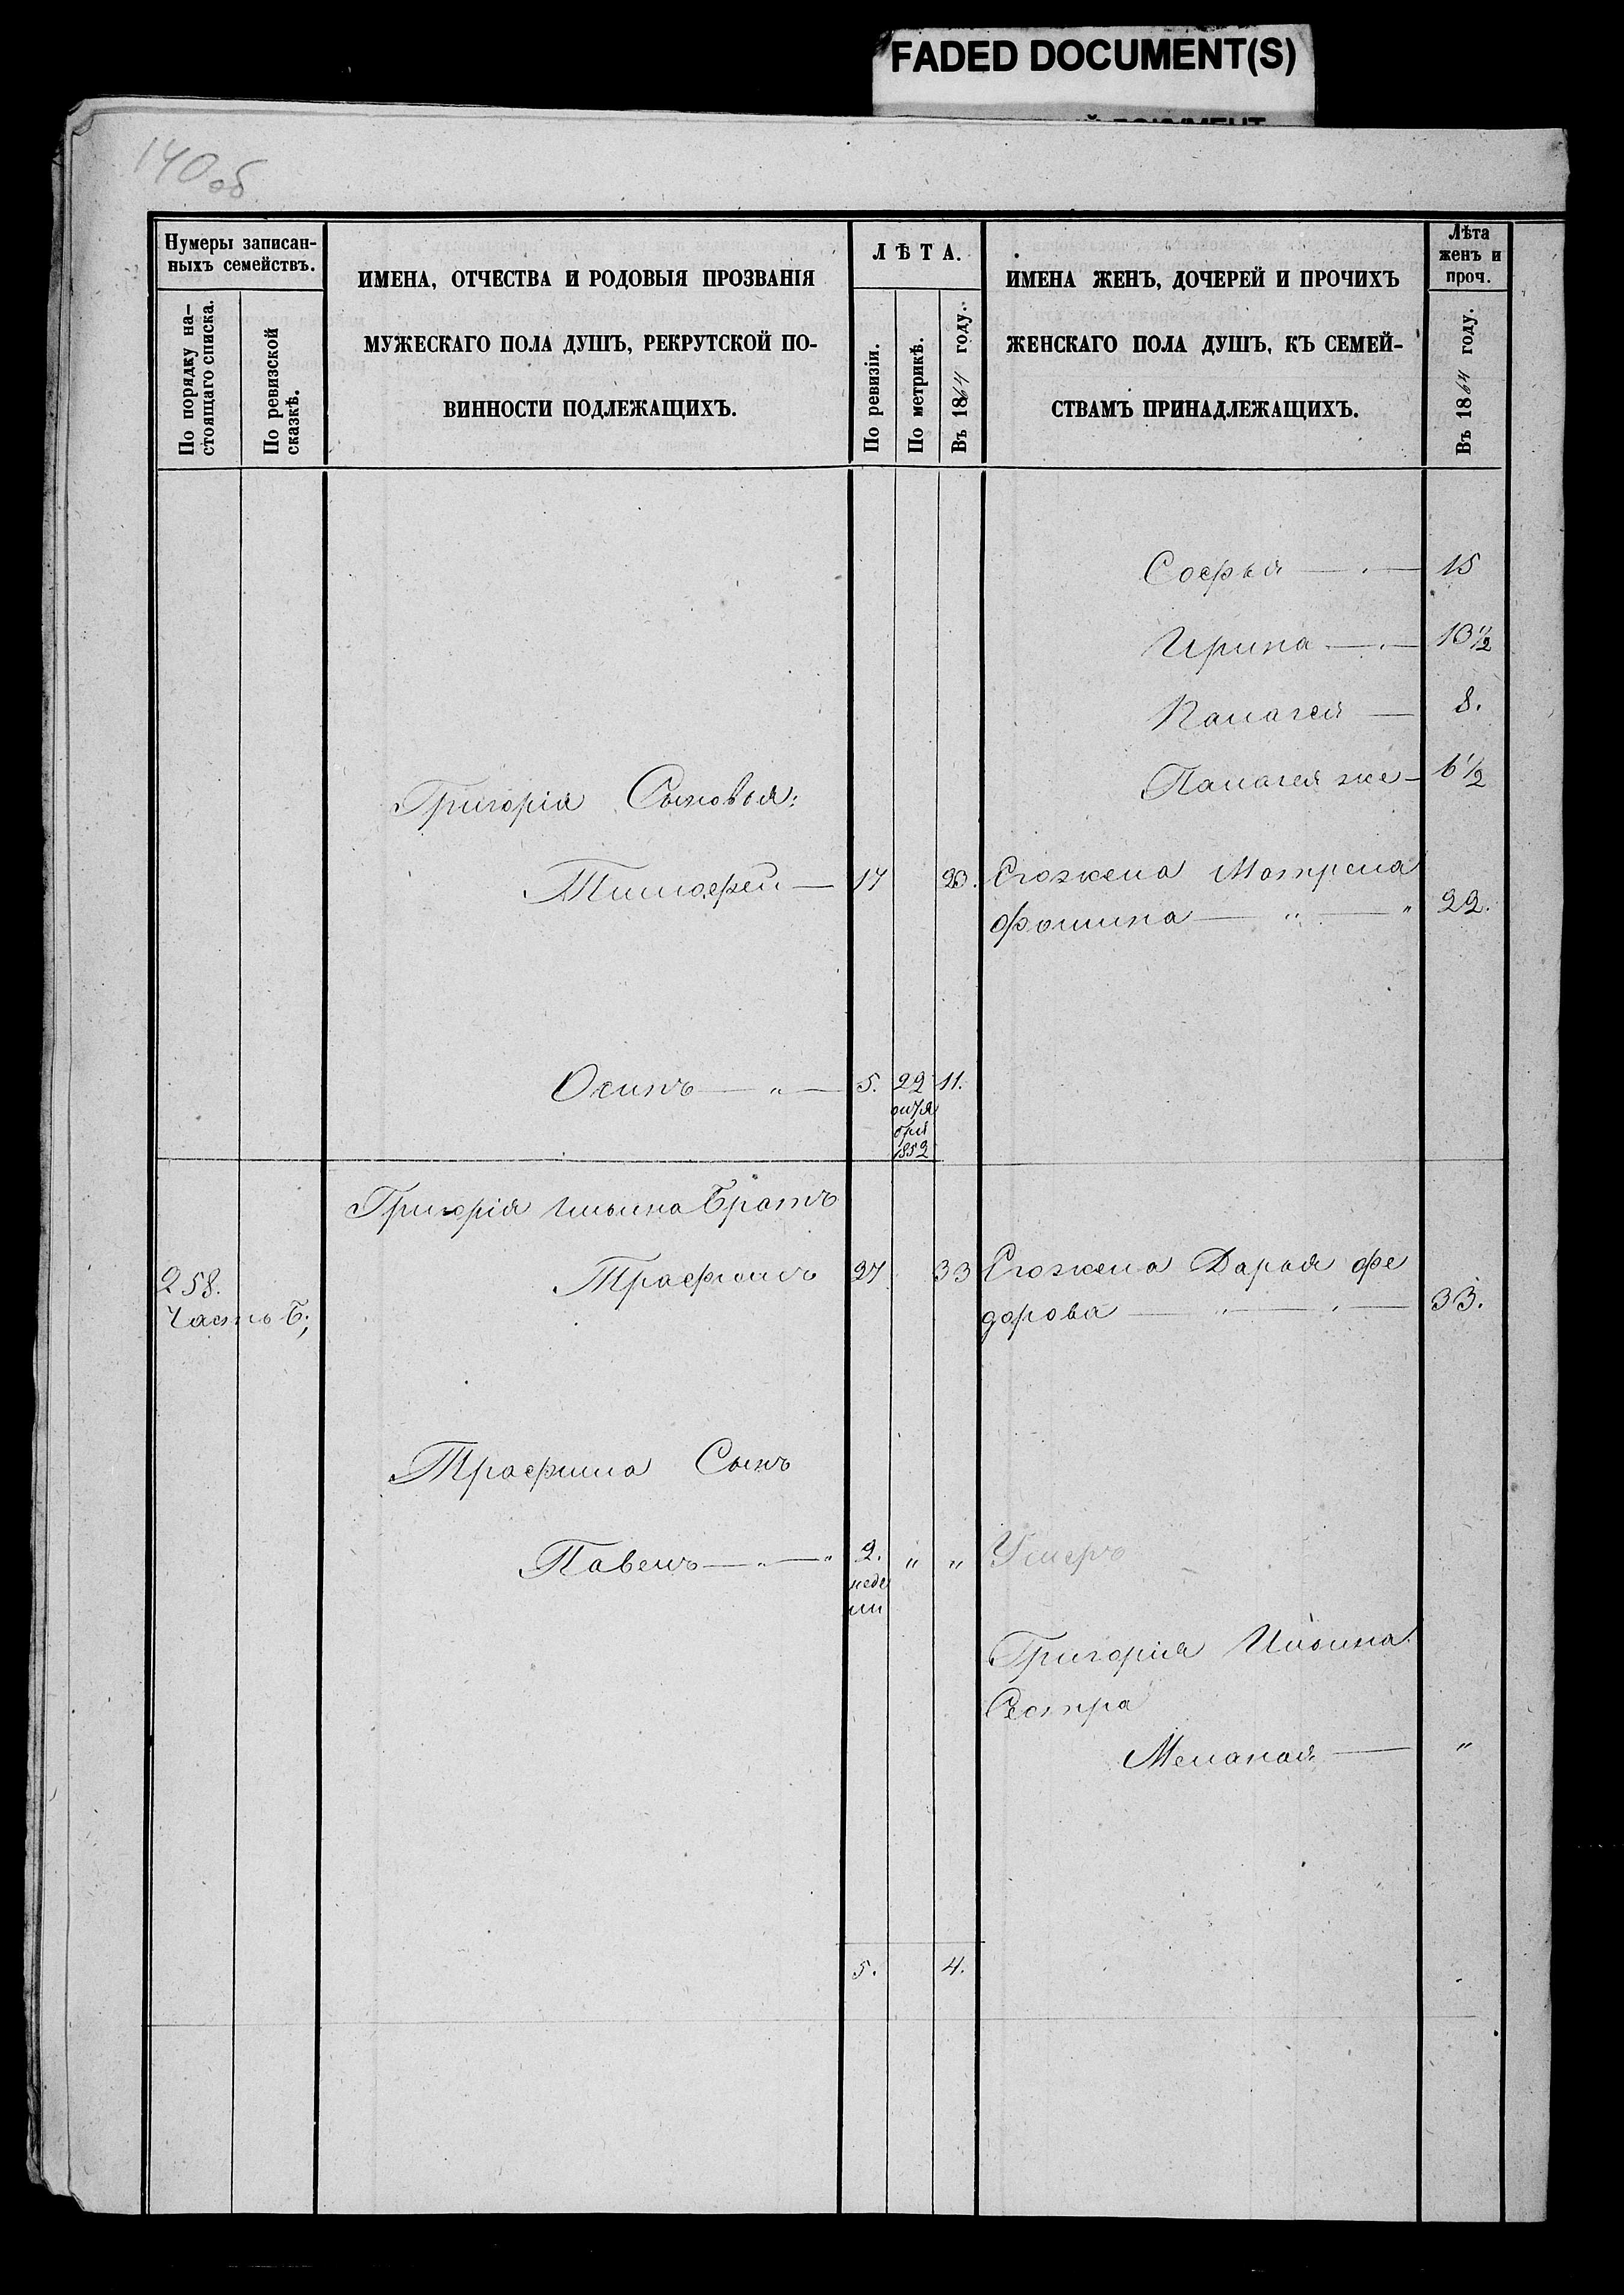 FADED DOCUMENT(S)
140 об
Нумеры записан-
ныхъ семействъ.
По порядку на-
стоящаго списка.
По ревизской
сказкѣ.
ИМЕНА, ОТЧЕСТВА И РОДОВЫЯ ПРОЗВАНІЯ
МУЖЕСКАГО ПОЛА ДУШЪ, РЕКРУТСКОЙ ПО-
ВИННОСТИ ПОДЛЕЖАЩИХЪ.
ЛѢТА.
По ревизіи.
По метрикѣ.
Въ 1864 году.
ИМЕНА ЖЕНЪ, ДОЧЕРЕЙ И ПРОЧИХЪ
ЖЕНСКАГО ПОЛА ДУШЪ, КЪ СЕМЕЙ-
СТВАМЪ ПРИНАДЛЕЖАЩИХЪ.
Лѣта
женъ и
проч.
Въ 1864 году.
Софья 15
Ирина 10½
Палагея 8.
Палагея же 6½
Григорія Сыновья:
Тимофей 17 23. Егожена Матрена
Фомина 22.
Осипъ 5. 22 11.
октя
бря
1852
Григорія Ильина Братъ
258. Трафимъ 27 33 Егожена Дарья Фе
Часть Б; дорова 33.
Трафима Сынъ
Павелъ 2. " " Умеръ
неде
ли
Григорія Ильина
Сестра
Меланая "
5. 4.